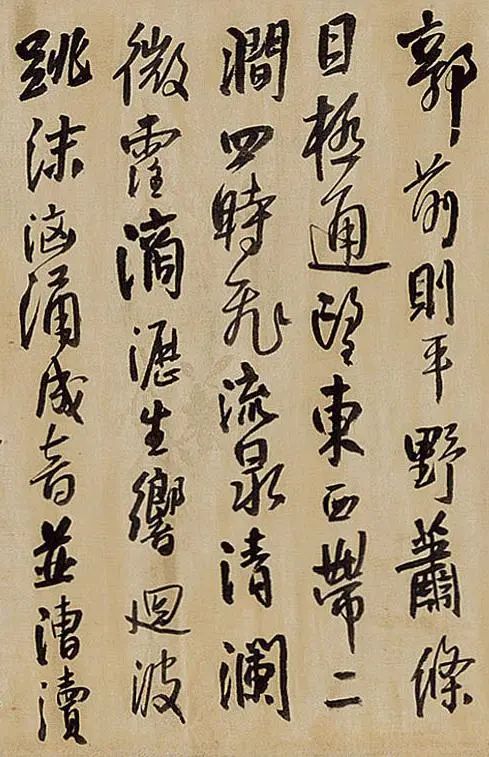 郭前則平野蕭條
目極通望東西帶二
澗四時飛流泉清瀾
微霔滴瀝生響迴波
跳沫洶涌成音並漕瀆